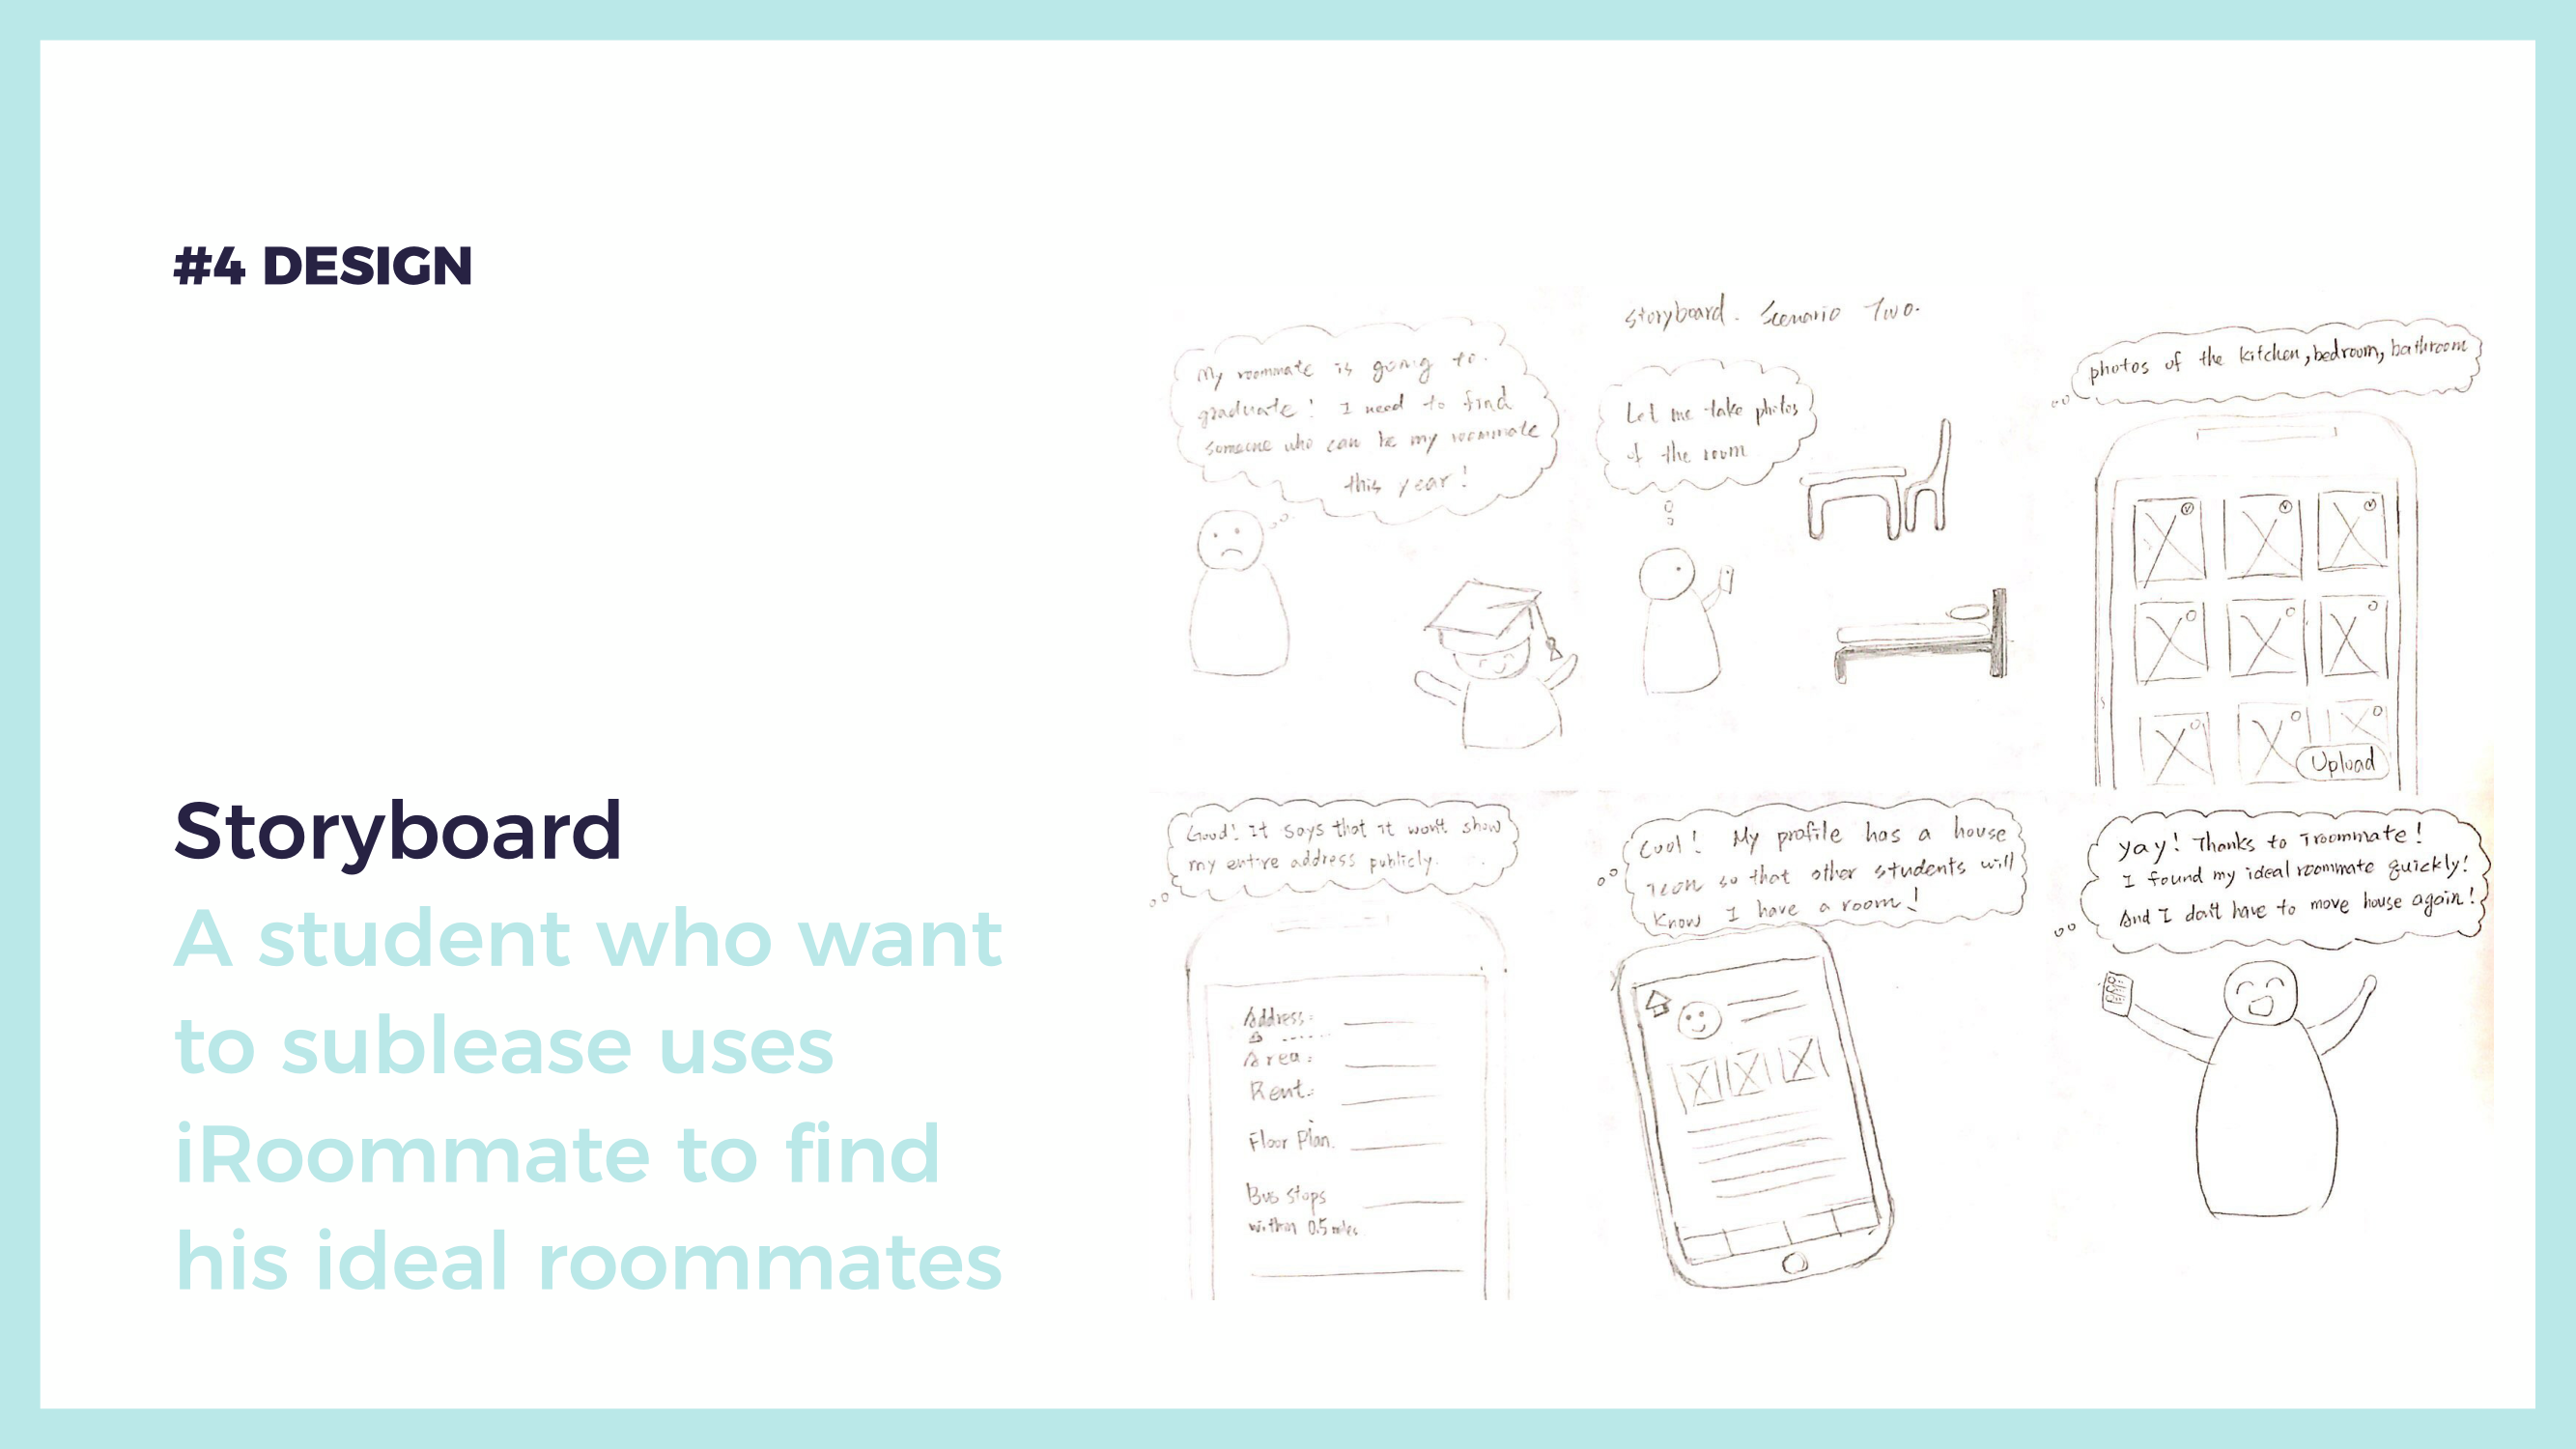 #4 DESIGN
Storyboard
A student who want
to sublease uses
iRoommate to find
his ideal roommates
Storyboard. Scenario Two.
My roommate is going to
graduate! I need to find
someone who can be my roommate
this year!
Let me take photos
of the room
photos of the kitchen, bedroom, bathroom
Upload
Good! It says that it won't show
my entire address publicly.
Address:
Area:
Rent:
Floor Plan.
Bus stops
within 0.5 miles
Cool! My profile has a house
icon so that other students will
know I have a room!
yay! Thanks to iroommate!
I found my ideal roommate quickly!
And I don't have to move house again!